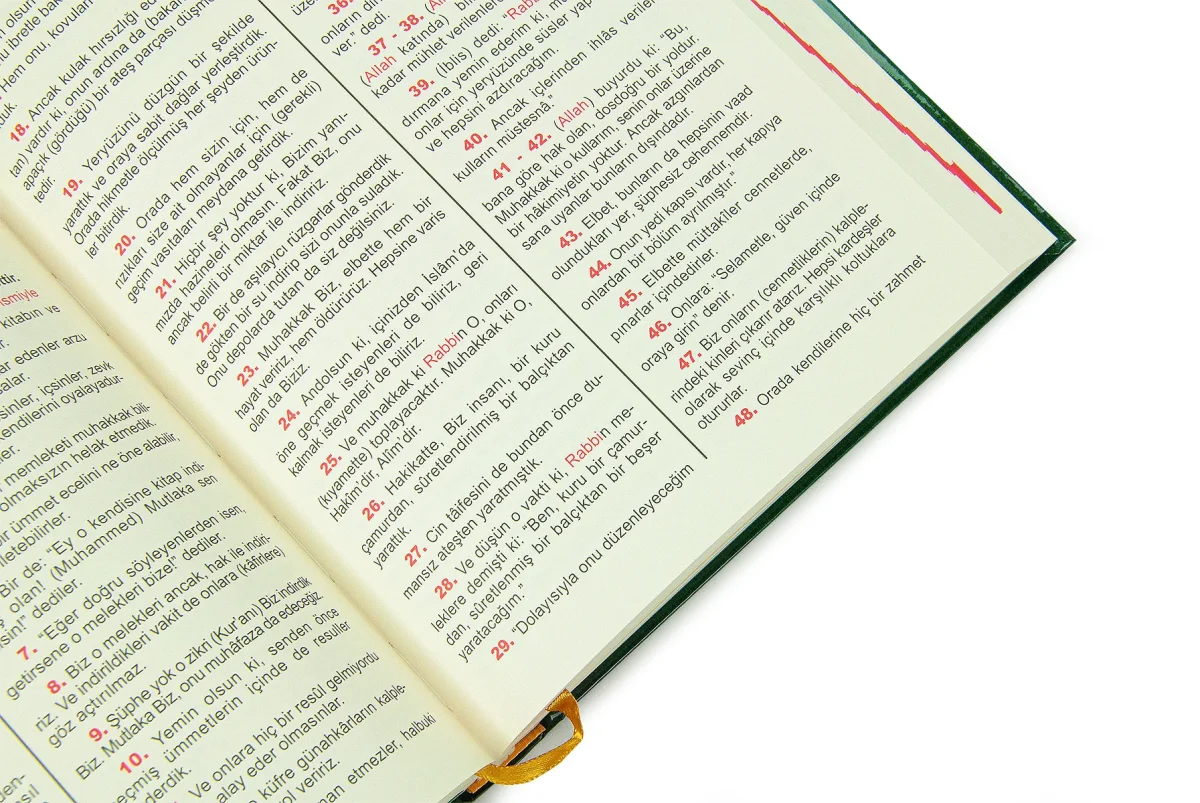 ittir.
ismiyle
kitabın ve
ar edenler arzu
alar.
sinler, içsinler, zevk
kendilerini oyalayadur-
er.
memleketi muhakkak bili-
olmaksızın helak etmedik.
bir ümmet ecelini ne öne alabilir,
iletebilirler.
Bir de: “Ey o kendisine kitap indi-
olan! (Muhammed) Mutlaka sen
sin!” dediler.
7. “Eğer doğru söyleyenlerden isen,
getirsene o melekleri bize!” dediler.
8. Biz o melekleri ancak, hak ile indiri-
riz. Ve indirildikleri vakit de onlara (kâfirlere)
göz açtırılmaz.
9. Şüphe yok o zikri (Kur'anı) Biz indirdik
Biz. Mutlaka Biz, onu muhâfaza da edeceğiz
10. Yemin olsun ki, senden önce
geçmiş ümmetlerin içinde de resuller
derdik.
Ve onlara hiç bir resûl gelmiyordu
alay eder olmasınlar.
o küfre günahkârların kalple-
yol veririz.
man etmezler, halbuki
olsun
ibretle bak
onu, kovulan
18. Ancak kulak hırsızlığı eden
tan) vardır ki, onun ardına da (bakan
apaçık (gördüğü) bir ateş parçası düşme
tedir.
19. Yeryüzünü düzgün bir şekilde
yarattık ve oraya sabit dağlar yerleştirdik.
Orada hikmetle ölçülmüş her şeyden ürün-
ler bitirdik.
20. Orada hem sizin için, hem de
rızıkları size ait olmayanlar için (gerekli)
geçim vasıtaları meydana getirdik.
21. Hiçbir şey yoktur ki, Bizim yanı-
mızda hazineleri olmasın. Fakat Biz, onu
ancak belirli bir miktar ile indiririz.
22. Bir de aşılayıcı rüzgarlar gönderdik
de gökten bir su indirip sizi onunla suladık.
Onu depolarda tutan da siz değilsiniz.
23. Muhakkak Biz, elbette hem bir
hayat veririz, hem öldürürüz. Hepsine varis
olan da Biziz.
24. Andolsun ki, içinizden İslâm'da
öne geçmek isteyenleri de biliriz, geri
kalmak isteyenleri de biliriz.
25. Ve muhakkak ki Rabbin O, onları
(kıyamette) toplayacaktır. Muhakkak ki O,
Hakîm'dir, Alîm'dir.
26. Hakikatte, Biz insanı, bir kuru
çamurdan, sûretlendirilmiş bir balçıktan
yarattık.
27. Cin tâifesini de bundan önce du-
mansız ateşten yaratmıştık.
28. Ve düşün o vakti ki, Rabbin me-
leklere demişti ki: “Ben, kuru bir çamur-
dan, sûretlenmiş bir balçıktan bir beşer
yaratacağım.”
29. “Dolayısıyla onu düzenleyeceğim
36.
onların dir
ver.” dedi.
37 - 38. (Allah
(Allah katında) bilin
kadar mühlet verilenlere
39. (İblis) dedi: “Rabb
dırmana yemin ederim ki, mu
onlar için yeryüzünde süsler yap
ve hepsini azdıracağım.
40. Ancak içlerinden ihlâs verilen
kulların müstesnâ.”
41 - 42. (Allah) buyurdu ki: “Bu,
bana göre hak olan, dosdoğru bir yoldur.
Muhakkak ki o kullarım, senin onlar üzerine
bir hâkimiyetin yoktur. Ancak azgınlardan
sana uyanlar bunların dışındadır.
43. Elbet, bunların da hepsinin vaad
olundukları yer, şüphesiz cehennemdir.
44. Onun yedi kapısı vardır, her kapıya
onlardan bir bölüm ayrılmıştır.”
45. Elbette müttakîler cennetlerde,
pınarlar içindedirler.
46. Onlara: “Selametle, güven içinde
oraya girin” denir.
47. Biz onların (cennetliklerin) kalple-
rindeki kinleri çıkarır atarız. Hepsi kardeşler
olarak sevinç içinde karşılıklı koltuklara
otururlar.
48. Orada kendilerine hiç bir zahmet